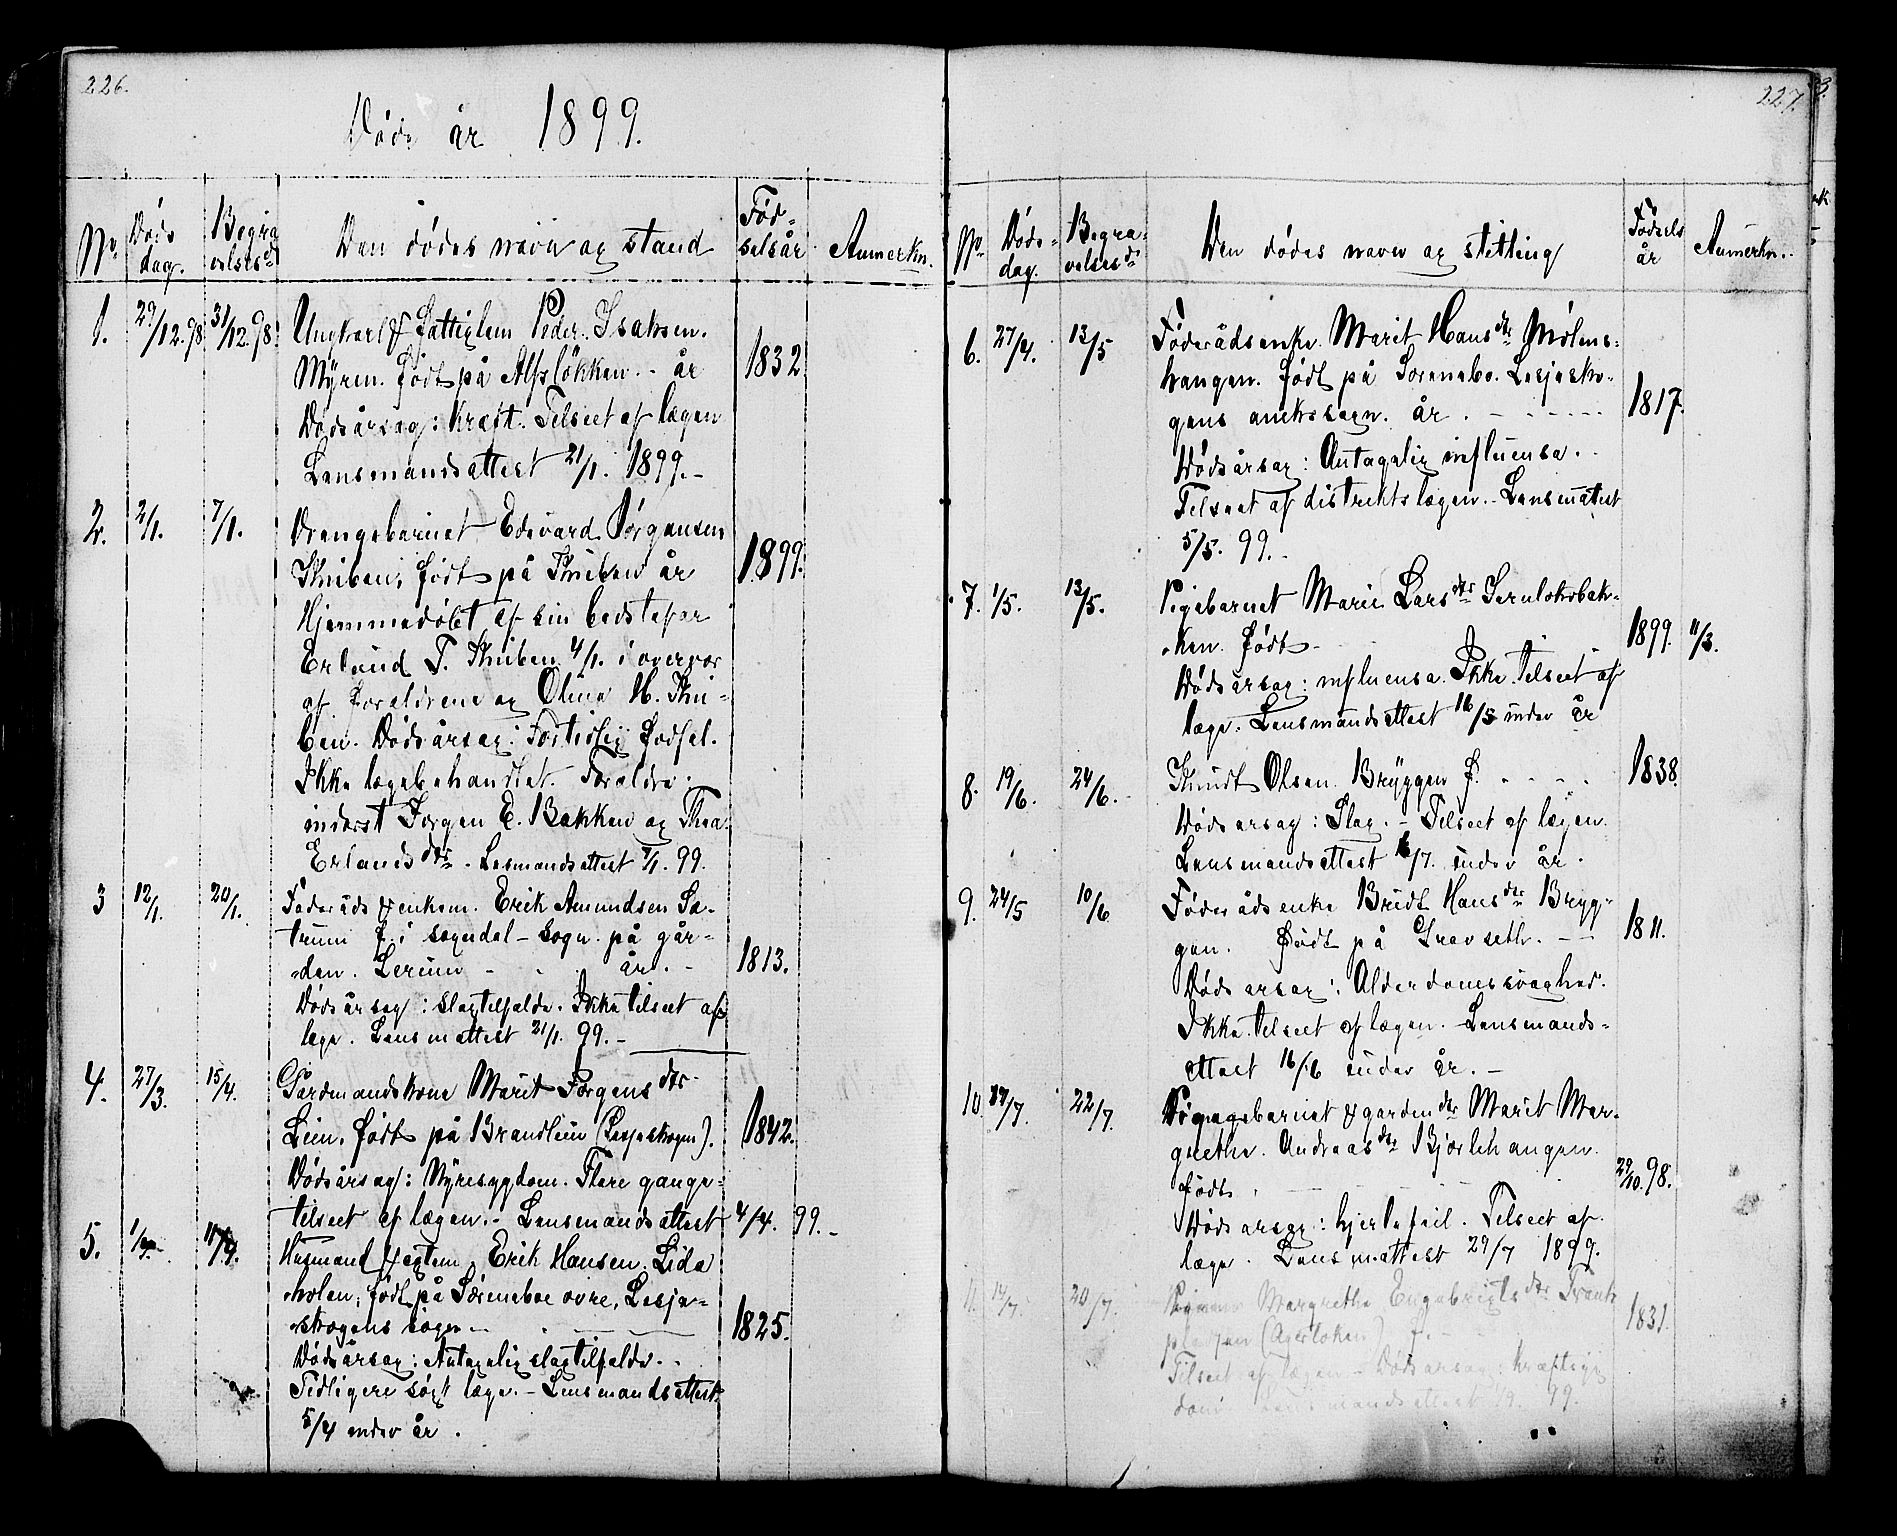 226.
Døde år 1899.
No Døds dag. Begravelsesd. Den dødes navn og stand Fødselsår Anmerkn.
1. 29/12.98 31/12.98. Ungkarl & Fattiglem Peder Isaksen.
Myren. født på Alfsløkken. - år 1832
Dødsårsag: Kræft. Tilseet af lægen
Lensmandsattest 21/1. 1899. -
2. 2/1. 7/1. Drengebarnet Edevard Jørgensen
Thniben, født på Thniben år 1899.
Hjemmedøbt af sin bedstefar
Erland T. Thniben 4/1. i overvær
af Forældrene og Olina H. Thni-
ben. Dødsårsag: Fortidlig Fødsel.
Ikke lægebehandlet. Forældre:
inderst Jørgen E. Bakken og Thea
Erlandsdtr. - Lesmandsattest 7/1. 99.
3 12/1. 20/1. Føderåds & enkem. Erik Amundsen Sæ-
trum f. i sogndal - sogn. på går-
den. Lerum - - år. - 1813.
Dødsårsag: slagtilfælde. Ikke tilseet af
læge. Lensmattest 21/1. 99. -
4. 27/3. 15/4. Gårdmandskone Marit Jørgensdtr
Lien, født på Brandlien (Lesjeskogen). 1842.
Dødsårsag: Nyresygdom. Flere gange
tilseet af lægen. - Lensmandsattest 4/4. 99. -
5. 1/4. 11/4. Husmand & egtem. Erik Hansen Lida
holen, født på Sørenaboe øvre, Lesja-
skogens sogn - 1825.
Dødsårsag: Antagelig slagtilfælde. -
Tidligere søgt læge. - Lensmandsattest
5/4 indev år.
227.
No Døds-dag. Begravelsesd. Den dødes navn og stilling Fødsels år Anmerkn.
6. 27/4. 13/5 Føderådsenke Marit Hansdtr Mølens-
hangen. født på Sørenabo. Lesjesko-
gens anekssogn. år. - - - - 1817.
Dødsårsag: Antagelig influensa. -
Tilseet af distriktslægen. - Lensmattest
5/5. 99. -
7. 1/5. 13/5. Pigebarnet Marie Larsdtr Jernloksbak-
ken. født - 1899. 11/3.
Dødsårsag: influensa. Ikke tilseet af
læge. Lensmandsattest 16/5 indev år
8. 19/6. 24/6. Knudt Olsen Bryggen f. - - - 1838.
Dødsårsag: Slag. - Tilseet af lægen.
Lensmandsattest 6/7. indev år.
9. 24/5 10/6 Føderådsenke Bridt Hansdtr Brygg-
gen. Født på Gravseth. - - 1811.
Dødsårsag: Alderdomssvaghed.
Ikke tilseet af lægen. Lensmands-
attest 16/6 indev år. -
10. 17/7. 22/7. Pigebarnet & gårdmdtr Marit Mar-
grethe. Andreasdtr Bjørlihangen.
født. - 29/10. 98.
Dødsårsag: hjertefeil. Tilseet af
læge. Lensmattest 29/7 1899.
11. 14/7. 20/7. Margrethe Engebrigtsdtr Trank
pladsen (Agerløken) f. - 1831.
Tilseet af lægen - Dødsårsag: kræftsyg
dom Lensmandsattest 1/9. 99.